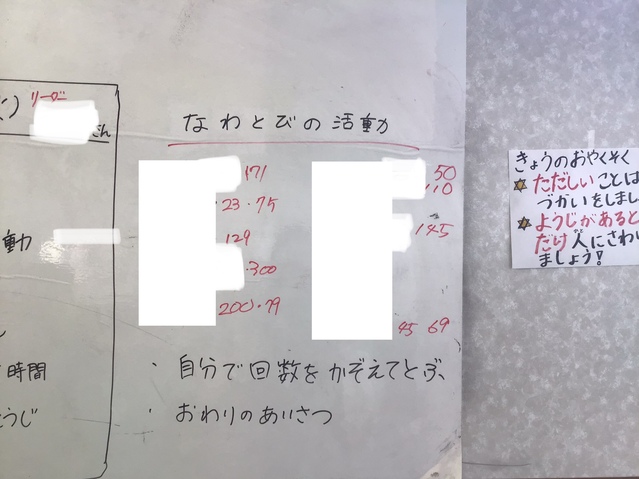 リーダー
さん
動
時間
うじ
なわとびの活動
171
23.75
129
.300
200.79
50
110
145
45 69
・自分で回数をかぞえてとぶ、
・おわりのあいさつ
きょうのおやくそく
ただしいことは
づかいをしまし
ようじがあると
だけ人にさわり
ましょう!